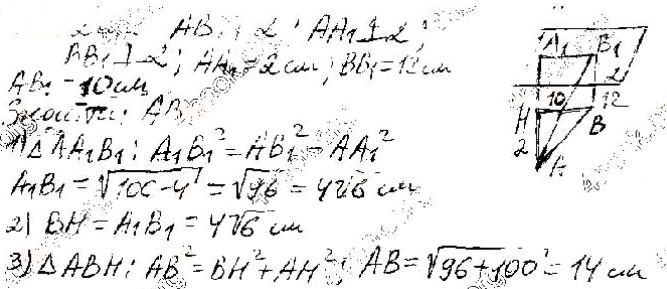 AB; AA₁ ⊥ α;
BB₁ ⊥ α; AA₁ = 2 см; BB₁ = 12 см
AB₁ = 10 см
AB
1) △AA₁B₁: A₁B₁² = AB₁² − AA₁²
A₁B₁ = √100−4 = √96 = 4√6 см
2) BH = A₁B₁ = 4√6 см
3) △ABH: AB² = BH² + AH²; AB = √96+100 = 14 см
A₁ B₁
2
10 12
H B
2
A